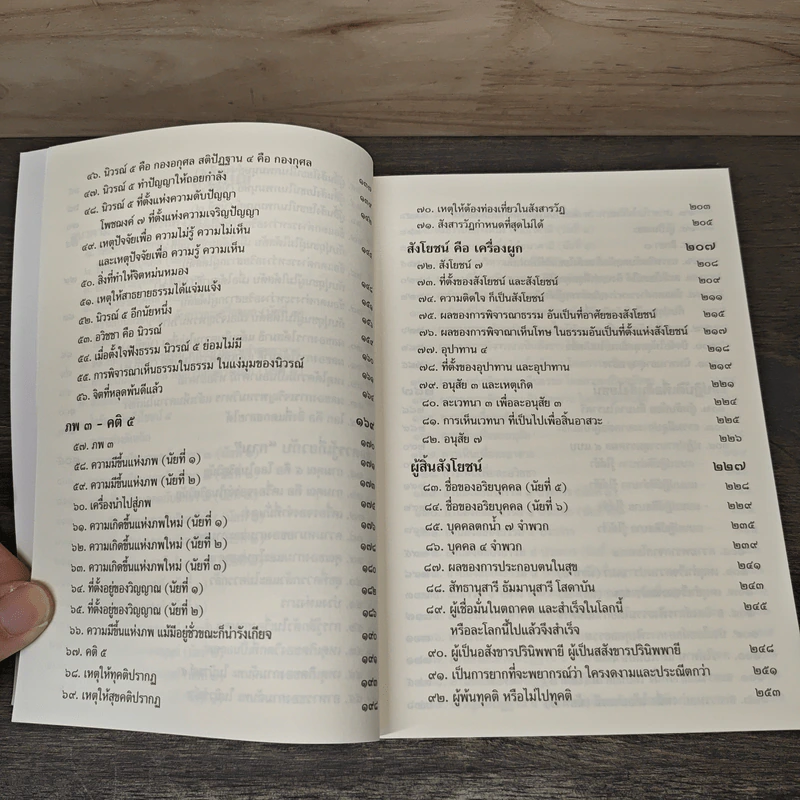 ๔๖. นิวรณ์ ๕ คือ กองอกุศล สติปัฏฐาน ๔ คือ กองกุศล
๔๗. นิวรณ์ ๕ ทำปัญญาให้ถอยกำลัง
๔๘. นิวรณ์ ๕ ที่ตั้งแห่งความดับปัญญา
โพชฌงค์ ๗ ที่ตั้งแห่งความเจริญปัญญา
๔๙. เหตุปัจจัยเพื่อ ความไม่รู้ ความไม่เห็น
และเหตุปัจจัยเพื่อ ความรู้ ความเห็น
๕๐. สิ่งที่ทำให้จิตหม่นหมอง
๕๑. เหตุให้สาธยายธรรมได้แจ่มแจ้ง
๕๒. นิวรณ์ ๕ อีกนัยหนึ่ง
๕๓. อวิชชา คือ นิวรณ์
๕๔. เมื่อตั้งใจฟังธรรม นิวรณ์ ๕ ย่อมไม่มี
๕๕. การพิจารณาเห็นธรรมในธรรม ในแง่มุมของนิวรณ์
๕๖. จิตที่หลุดพ้นดีแล้ว
ภพ ๓ - คติ ๕ ๑๖๙
๕๗. ภพ ๓
๕๘. ความมีขึ้นแห่งภพ (นัยที่ ๑)
๕๙. ความมีขึ้นแห่งภพ (นัยที่ ๒)
๖๐. เครื่องนำไปสู่ภพ
๖๑. ความเกิดขึ้นแห่งภพใหม่ (นัยที่ ๑)
๖๒. ความเกิดขึ้นแห่งภพใหม่ (นัยที่ ๒)
๖๓. ความเกิดขึ้นแห่งภพใหม่ (นัยที่ ๓)
๖๔. ที่ตั้งอยู่ของวิญญาณ (นัยที่ ๑)
๖๕. ที่ตั้งอยู่ของวิญญาณ (นัยที่ ๒)
๖๖. ความมีขึ้นแห่งภพ แม้มีอยู่ชั่วขณะก็น่ารังเกียจ
๖๗. คติ ๕
๖๘. เหตุให้ทุคติปรากฏ
๖๙. เหตุให้สุขคติปรากฏ
๗๐. เหตุให้ต้องท่องเที่ยวในสังสารวัฏ ๒๐๓
๗๑. สังสารวัฏกำหนดที่สุดไม่ได้ ๒๐๕
สังโยชน์ คือ เครื่องผูก ๒๐๗
๗๒. สังโยชน์ ๗ ๒๐๘
๗๓. ที่ตั้งของสังโยชน์ และสังโยชน์ ๒๐๙
๗๔. ความติดใจ ก็เป็นสังโยชน์ ๒๑๑
๗๕. ผลของการพิจารณาธรรม อันเป็นที่อาศัยของสังโยชน์ ๒๑๕
๗๖. ผลของการพิจาณาเห็นโทษ ในธรรมอันเป็นที่ตั้งแห่งสังโยชน์ ๒๑๗
๗๗. อุปาทาน ๔ ๒๑๘
๗๘. ที่ตั้งของอุปาทาน และอุปาทาน ๒๑๙
๗๙. อนุสัย ๓ และเหตุเกิด ๒๒๑
๘๐. ละเวทนา ๓ เพื่อละอนุสัย ๓ ๒๒๔
๘๑. การเห็นเวทนา ที่เป็นไปเพื่อสิ้นอาสวะ ๒๒๕
๘๒. อนุสัย ๗ ๒๒๖
ผู้สิ้นสังโยชน์ ๒๒๗
๘๓. ชื่อของอริยบุคคล (นัยที่ ๕) ๒๒๘
๘๔. ชื่อของอริยบุคคล (นัยที่ ๖) ๒๒๙
๘๕. บุคคลตกน้ำ ๗ จำพวก ๒๓๕
๘๖. บุคคล ๔ จำพวก ๒๓๙
๘๗. ผลของการประกอบตนในสุข ๒๔๑
๘๘. สัทธานุสารี ธัมมานุสารี โสดาบัน ๒๔๓
๘๙. ผู้เชื่อมั่นในตถาคต และสำเร็จในโลกนี้ ๒๔๕
หรือละโลกนี้ไปแล้วจึงสำเร็จ
๙๐. ผู้เป็นอสังขารปรินิพพายี ผู้เป็นสสังขารปรินิพพายี ๒๔๘
๙๑. เป็นการยากที่จะพยากรณ์ว่า ใครงดงามและประณีตกว่า ๒๕๑
๙๒. ผู้พ้นทุคติ หรือไม่ไปทุคติ ๒๕๓